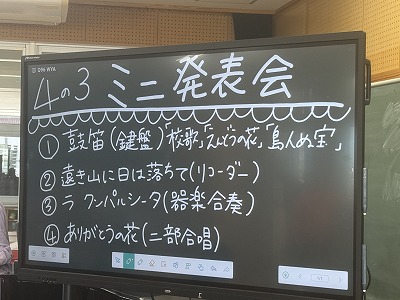 4の3 ミニ発表会
① 鼓笛(鍵盤)「校歌」「えんどうの花」「島人ぬ宝」
② 遠き山に日は落ちて(リコーダー)
③ ラ クンパルシータ(器楽合奏)
④ ありがとうの花(二部合唱)